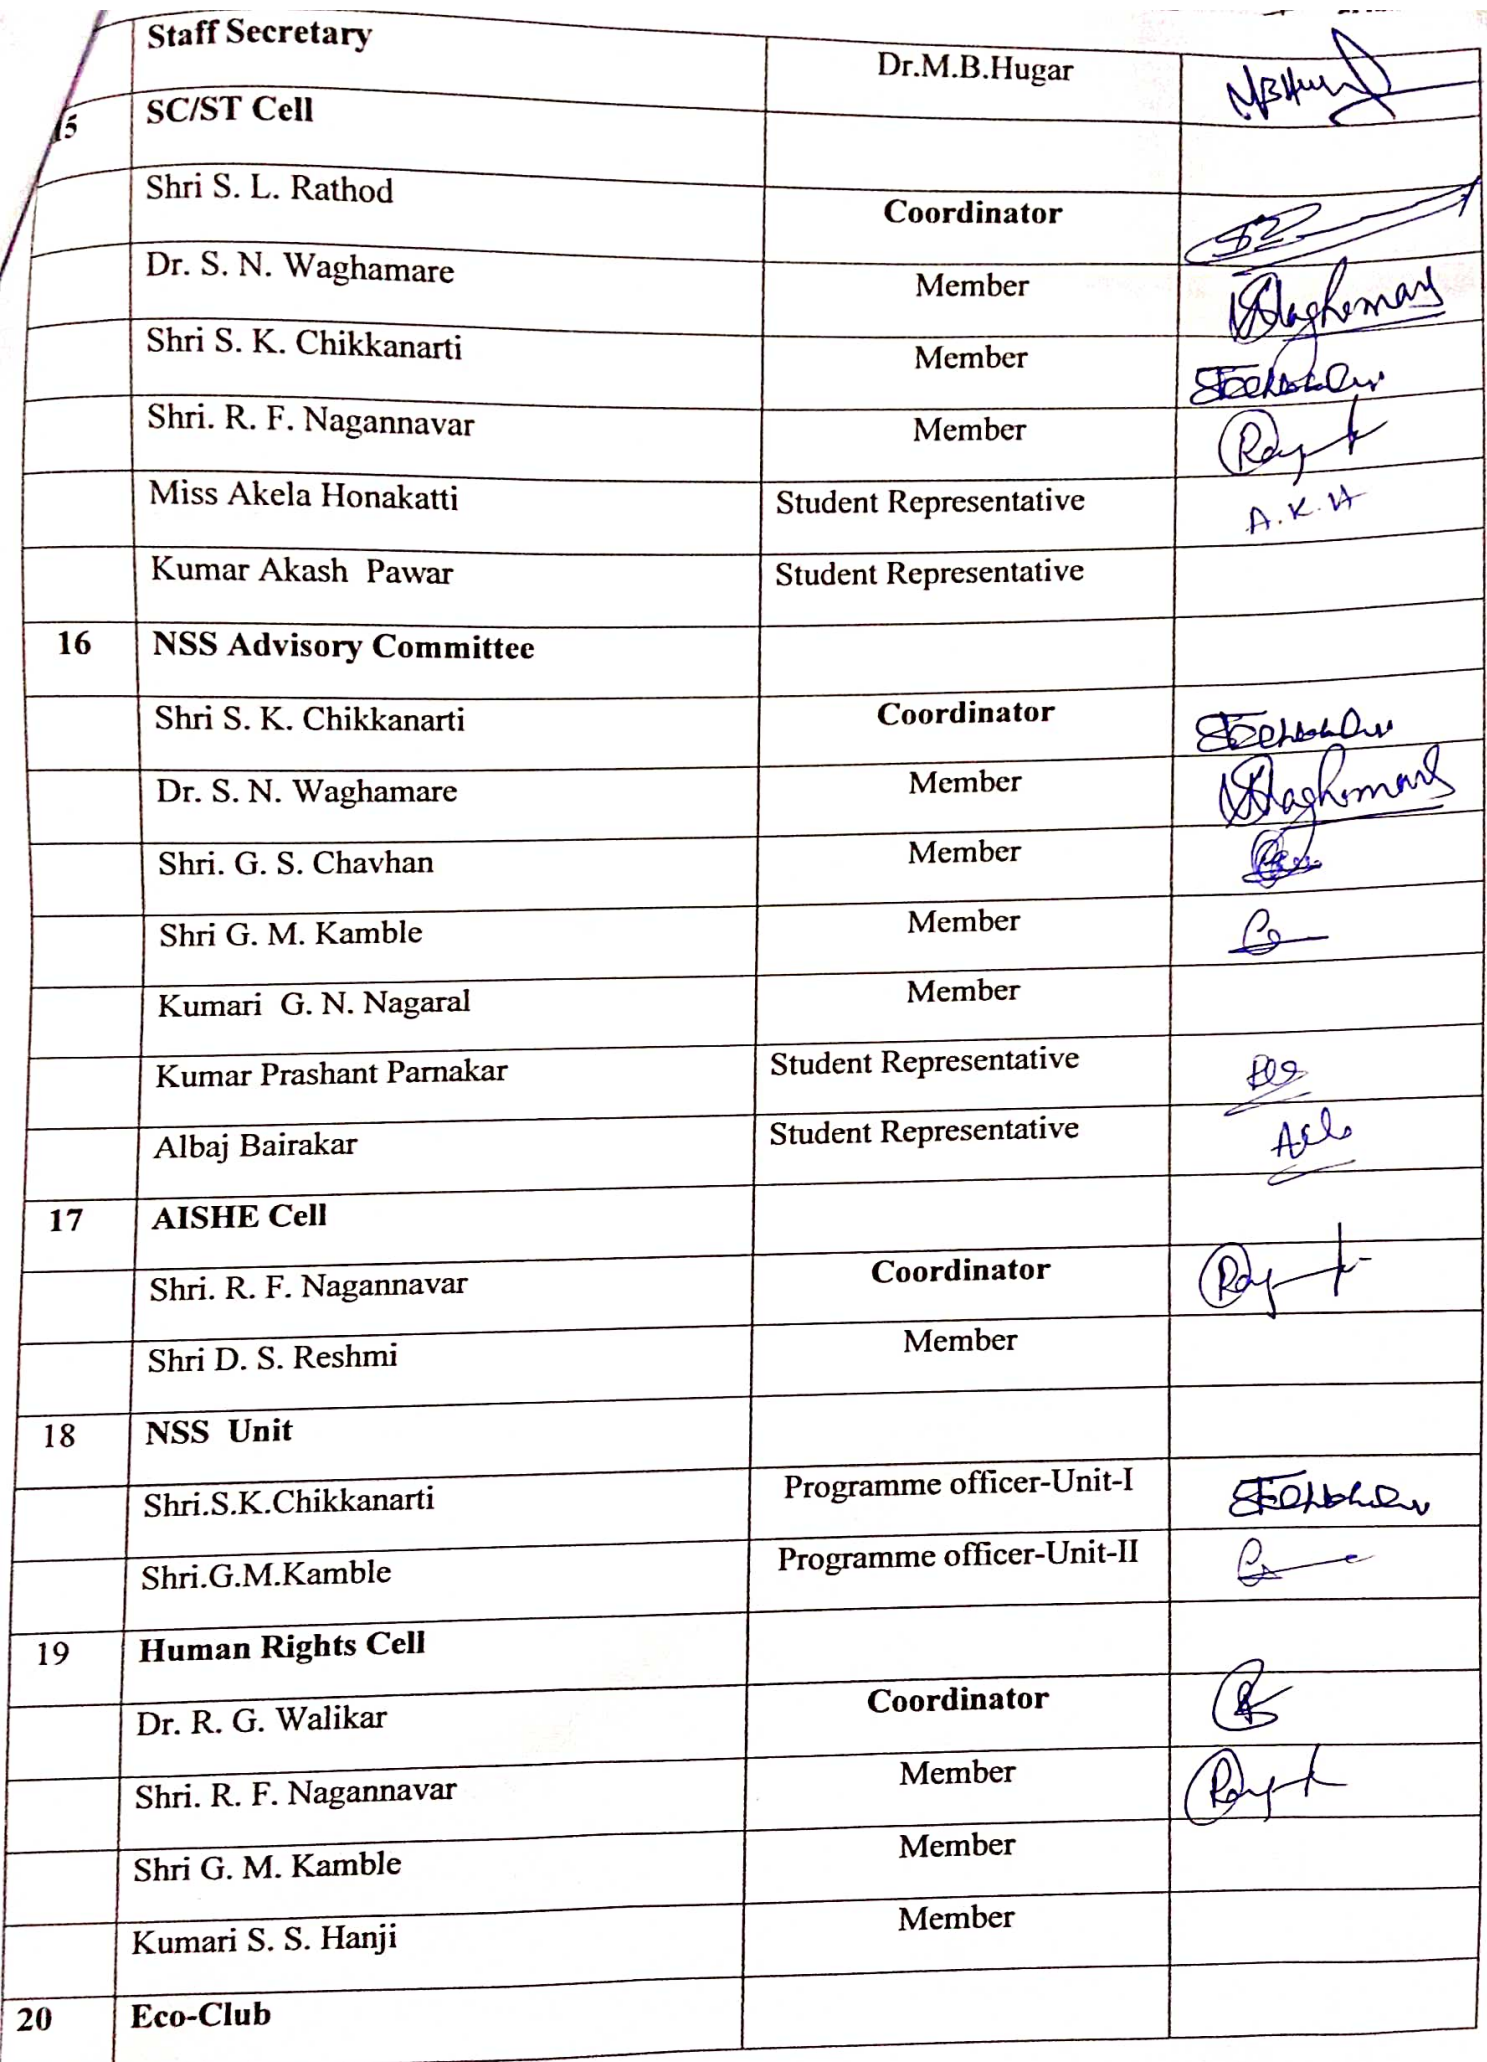 Staff Secretary Dr.M.B.Hugar MBHu
15 SC/ST Cell
Shri S. L. Rathod Coordinator
Dr. S. N. Waghamare Member
Shri S. K. Chikkanarti Member
Shri. R. F. Nagannavar Member
Miss Akela Honakatti Student Representative A.K.H
Kumar Akash Pawar Student Representative
16 NSS Advisory Committee
Shri S. K. Chikkanarti Coordinator
Dr. S. N. Waghamare Member
Shri. G. S. Chavhan Member
Shri G. M. Kamble Member
Kumari G. N. Nagaral Member
Kumar Prashant Parnakar Student Representative
Albaj Bairakar Student Representative
17 AISHE Cell
Shri. R. F. Nagannavar Coordinator
Shri D. S. Reshmi Member
18 NSS Unit
Shri.S.K.Chikkanarti Programme officer-Unit-I
Shri.G.M.Kamble Programme officer-Unit-II
19 Human Rights Cell
Dr. R. G. Walikar Coordinator
Shri. R. F. Nagannavar Member
Shri G. M. Kamble Member
Kumari S. S. Hanji Member
20 Eco-Club